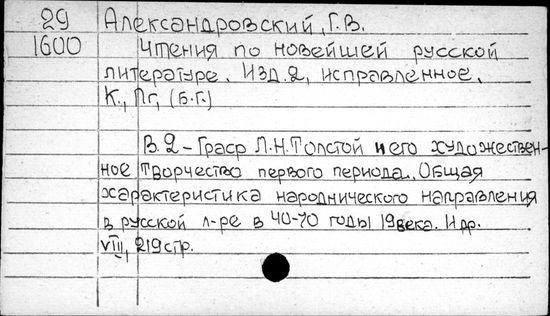 29 Александровский, Г.В.
1600 Чтения по новейшей русской
литературе. Изд. 2, исправленное.
К., Пг, (Б.Г.)
В. 2 – Граф Л.Н.Толстой и его художествен-
ное творчество первого периода. Общая
характеристика народнического направления
в русской л-ре в 40-70 годы 19 века. И др.
VIII, 219 стр.